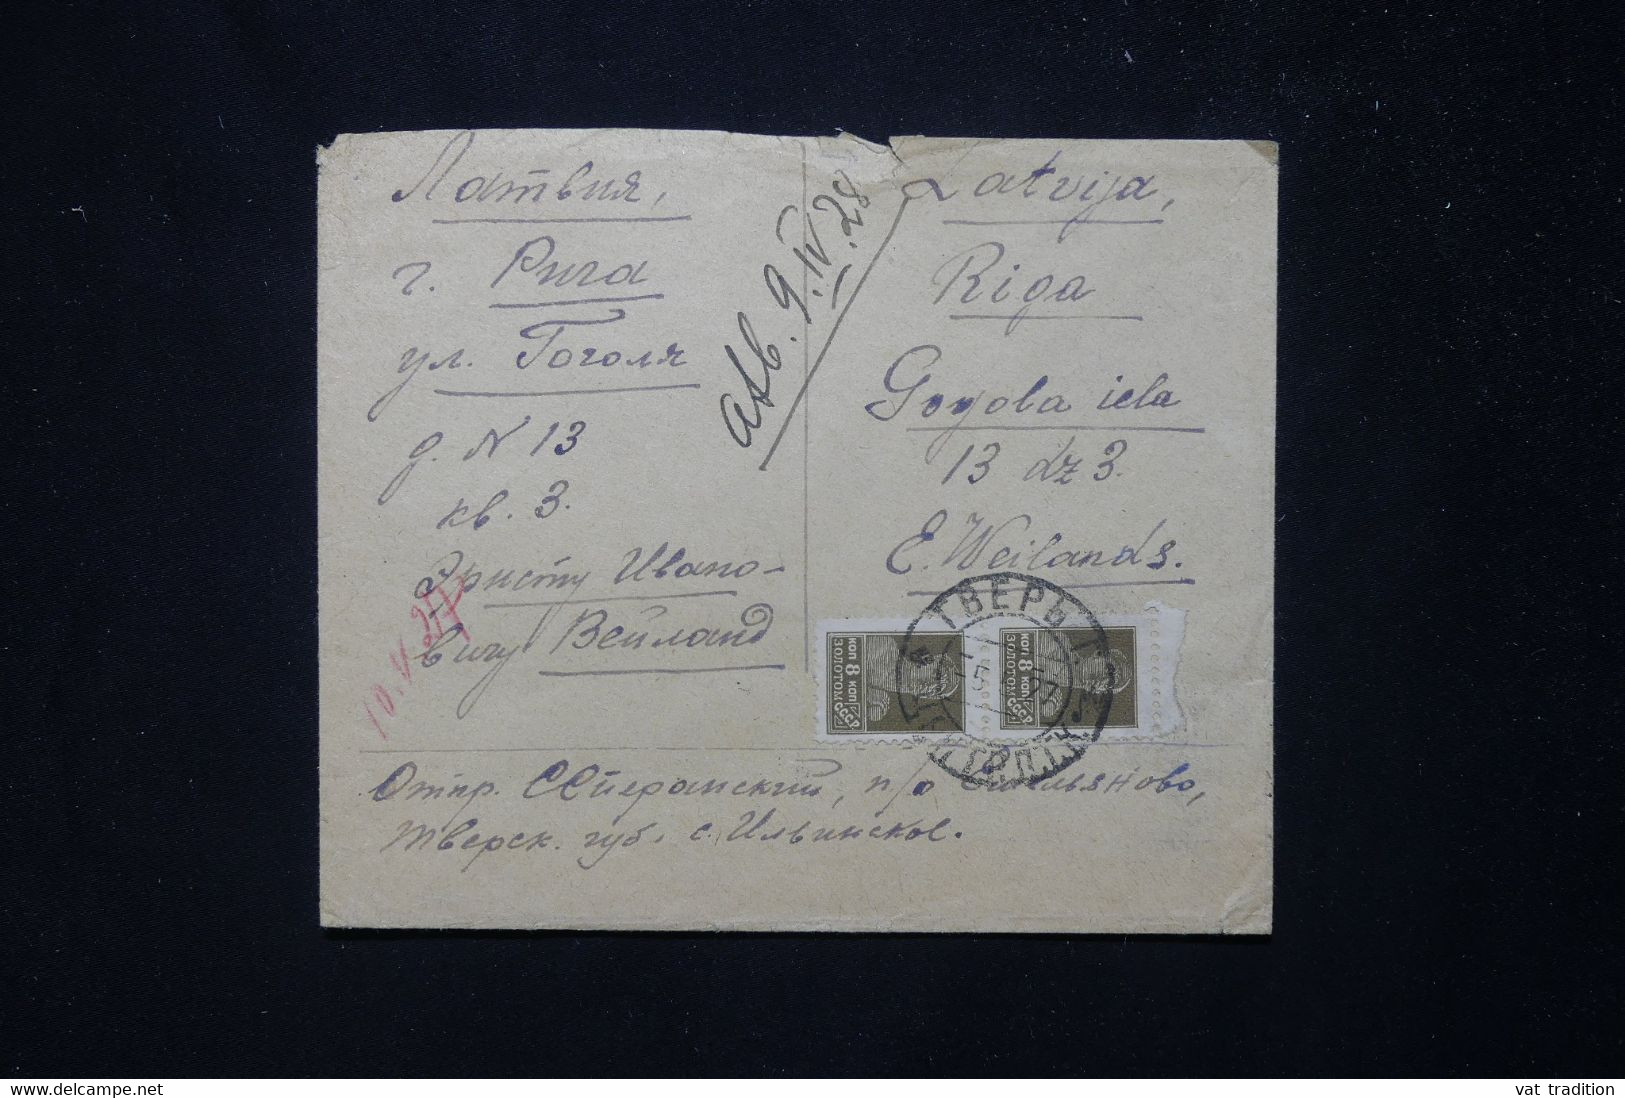 Латвия,
г. Рига
ул. Гоголя
д. N 13
кв. 3.
Эрнсту Ивано-
вичу Вейланд
атв. 9.IV.28
Latvija,
Riga
Goyola iela
13 dz 3.
E. Weilands.
10.V.27
ТВЕРЬ
КОП 8 КОП
ЗОЛОТОМ СССР
КОП 8 КОП
ЗОЛОТОМ СССР
Отпр. Сперанский, п/о
Тверск. губ. с. Ильинское.
www.delcampe.net
vat tradition